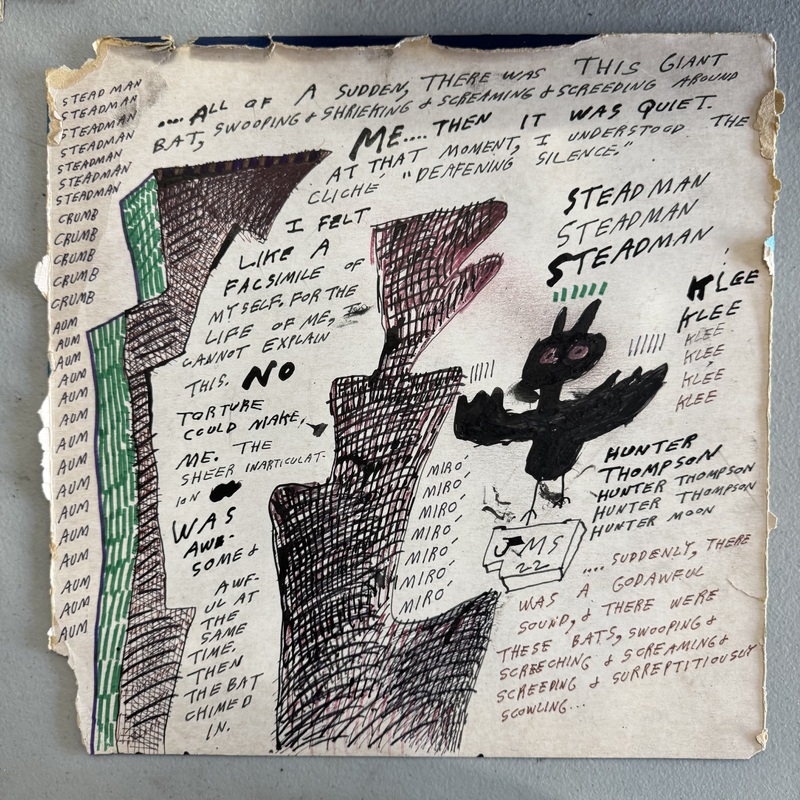 ....ALL OF A SUDDEN, THERE WAS THIS GIANT
BAT, SWOOPING & SHRIEKING & SCREAMING & SCREEDING AROUND
ME.... THEN IT WAS QUIET.
AT THAT MOMENT, I UNDERSTOOD THE
CLICHÉ "DEAFENING SILENCE."
STEADMAN
STEADMAN
STEADMAN
STEADMAN
STEADMAN
STEADMAN
STEADMAN
CRUMB
CRUMB
CRUMB
CRUMB
CRUMB
AUM
AUM
AUM
AUM
AUM
AUM
AUM
AUM
AUM
AUM
AUM
AUM
AUM
AUM
I FELT
LIKE A
FACSIMILE OF
MYSELF. FOR THE
LIFE OF ME, I
CANNOT EXPLAIN
THIS. NO
TORTURE
COULD MAKE,
ME. THE
SHEER INARTICULAT-
ION
WAS
AWE-
SOME &
AWF-
UL AT
THE
SAME
TIME.
THEN
THE BAT
CHIMED
IN.
STEADMAN
STEADMAN
STEADMAN
KLEE
KLEE
KLEE
KLEE
KLEE
KLEE
MIRO'
MIRO'
MIRO'
MIRO'
MIRO'
MIRO'
MIRO'
HUNTER
THOMPSON
HUNTER THOMPSON
HUNTER THOMPSON
HUNTER MOON
JMS
22
.... SUDDENLY, THERE
WAS A GODAWFUL
SOUND, & THERE WERE
THESE BATS, SWOOPING &
SCREECHING & SCREAMING &
SCREEDING & SURREPTITIOUSLY
SCOWLING...